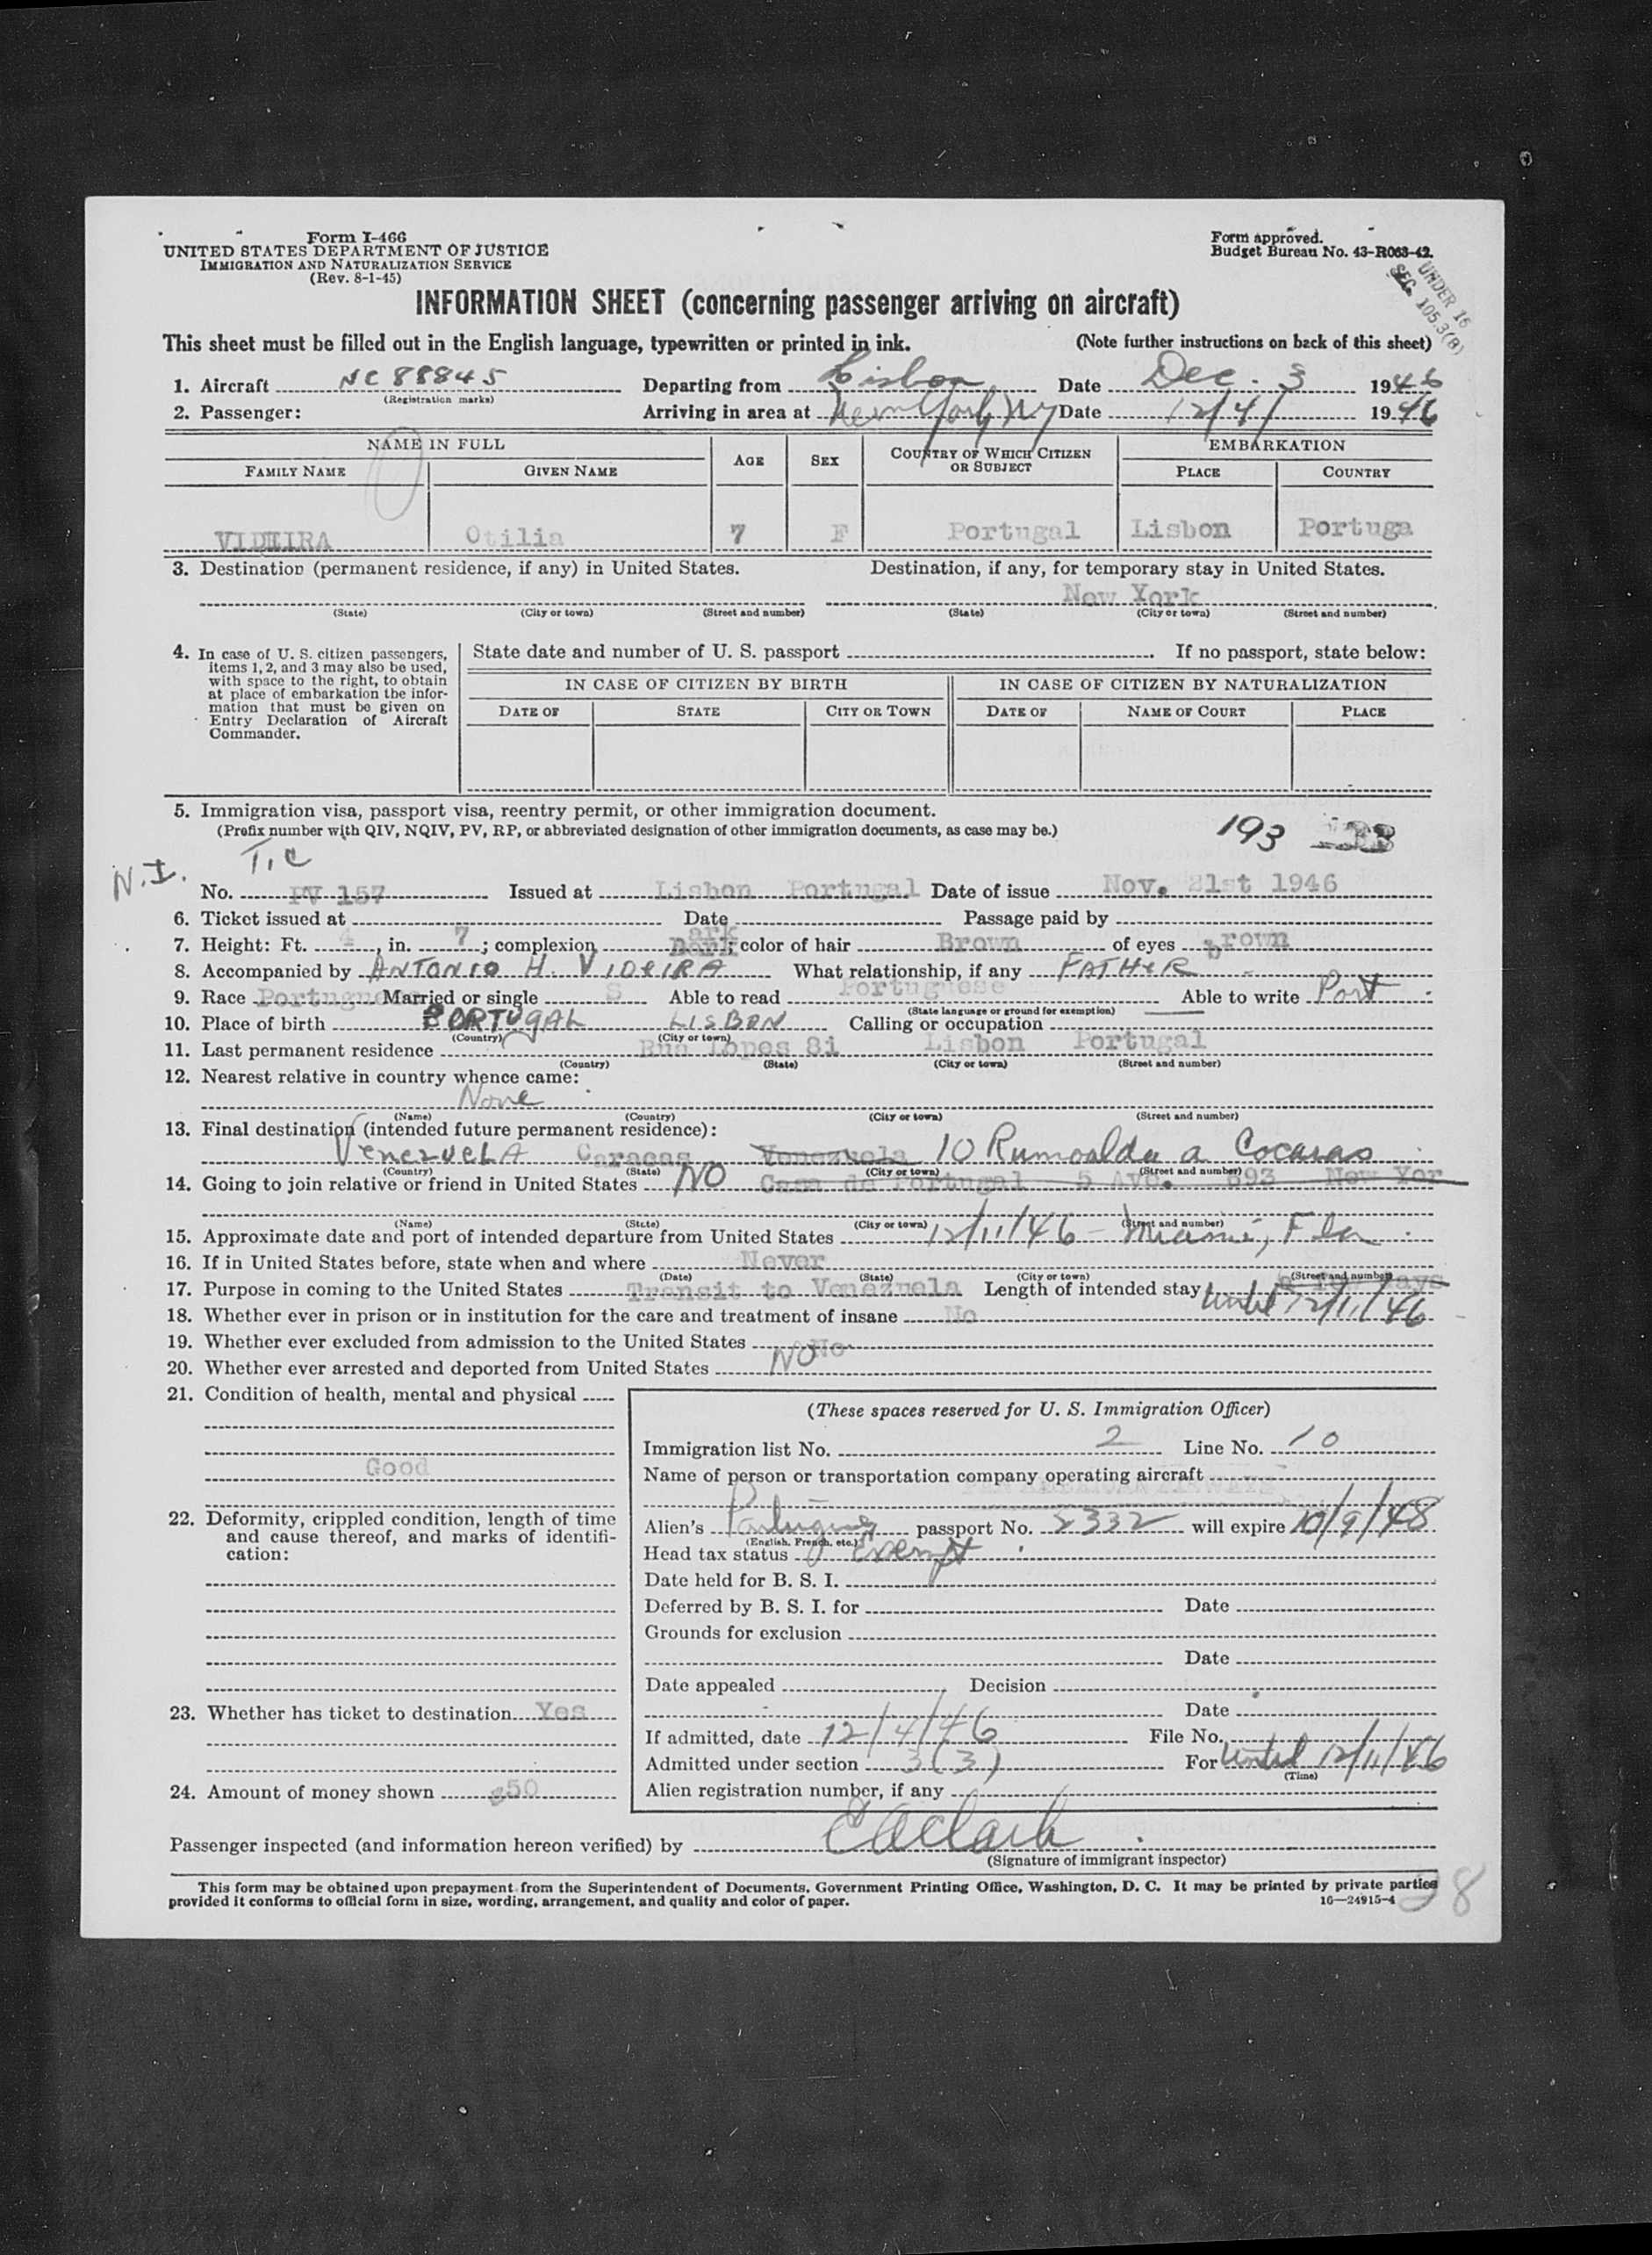 Form I-466
UNITED STATES DEPARTMENT OF JUSTICE
IMMIGRATION AND NATURALIZATION SERVICE
(Rev. 8-1-45)
Form approved.
Budget Bureau No. 43-R063-42.
UNDER 16
SEC. 105.3(B)
INFORMATION SHEET (concerning passenger arriving on aircraft)
This sheet must be filled out in the English language, typewritten or printed in ink. (Note further instructions on back of this sheet)
1. Aircraft NC 88845 Departing from Lisbon Date Dec. 3 1946
(Registration marks)
2. Passenger: Arriving in area at New York NY Date 12/4/ 1946
NAME IN FULL AGE SEX COUNTRY OF WHICH CITIZEN OR SUBJECT EMBARKATION
FAMILY NAME GIVEN NAME PLACE COUNTRY
Otilia 7 F Portugal Lisbon Portuga
3. Destination (permanent residence, if any) in United States. Destination, if any, for temporary stay in United States.
New York
(State) (City or town) (Street and number) (State) (City or town) (Street and number)
4. In case of U. S. citizen passengers, items 1, 2, and 3 may also be used, with space to the right, to obtain at place of embarkation the information that must be given on Entry Declaration of Aircraft Commander.
State date and number of U. S. passport If no passport, state below:
IN CASE OF CITIZEN BY BIRTH IN CASE OF CITIZEN BY NATURALIZATION
DATE OF STATE CITY OR TOWN DATE OF NAME OF COURT PLACE
5. Immigration visa, passport visa, reentry permit, or other immigration document.
(Prefix number with QIV, NQIV, PV, RP, or abbreviated designation of other immigration documents, as case may be.)
193
T.C
N.I.
No. PV 157 Issued at Lisbon Portugal Date of issue Nov. 21st 1946
6. Ticket issued at Date Passage paid by
7. Height: Ft. 4, in. 7; complexion Dark; color of hair Brown of eyes brown
8. Accompanied by ANTONIO H. VIDEIRA What relationship, if any FATHER
9. Race Portuguese Married or single S Able to read Portuguese Able to write Port
(State language or ground for exemption)
10. Place of birth PORTUGAL LISBON Calling or occupation
(Country) (City or town)
11. Last permanent residence Rua Lopes 81 Lisbon Portugal
(Country) (State) (City or town) (Street and number)
12. Nearest relative in country whence came:
None
(Name) (Country) (City or town) (Street and number)
13. Final destination (intended future permanent residence):
VENEZUELA Caracas Venezuela 10 Rumoalda a Cocaras
(Country) (State) (City or town) (Street and number)
14. Going to join relative or friend in United States NO Casa de Portugal 5 Ave. 893 New Yor
(Name) (State) (City or town) (Street and number)
15. Approximate date and port of intended departure from United States 12/11/46 - Miami, Fla.
16. If in United States before, state when and where Never
(Date) (State) (City or town) (Street and number)
17. Purpose in coming to the United States Transit to Venezuela Length of intended stay until 12/11/46
18. Whether ever in prison or in institution for the care and treatment of insane No
19. Whether ever excluded from admission to the United States No
20. Whether ever arrested and deported from United States NO
21. Condition of health, mental and physical
Good
22. Deformity, crippled condition, length of time and cause thereof, and marks of identification:
23. Whether has ticket to destination Yes
24. Amount of money shown $50
(These spaces reserved for U. S. Immigration Officer)
Immigration list No. 2 Line No. 10
Name of person or transportation company operating aircraft
PAN AMERICAN AIRWAYS
Alien's Portuguese passport No. 2332 will expire 10/9/48
(English, French, etc.)
Head tax status Exempt
Date held for B. S. I.
Deferred by B. S. I. for Date
Grounds for exclusion
Date
Date appealed Decision
Date
If admitted, date 12/4/46 File No.
Admitted under section 3(3) For until 12/11/46
(Time)
Alien registration number, if any
Passenger inspected (and information hereon verified) by E A Clark
(Signature of immigrant inspector)
This form may be obtained upon prepayment from the Superintendent of Documents, Government Printing Office, Washington, D. C. It may be printed by private parties
provided it conforms to official form in size, wording, arrangement, and quality and color of paper. 16—24915-4